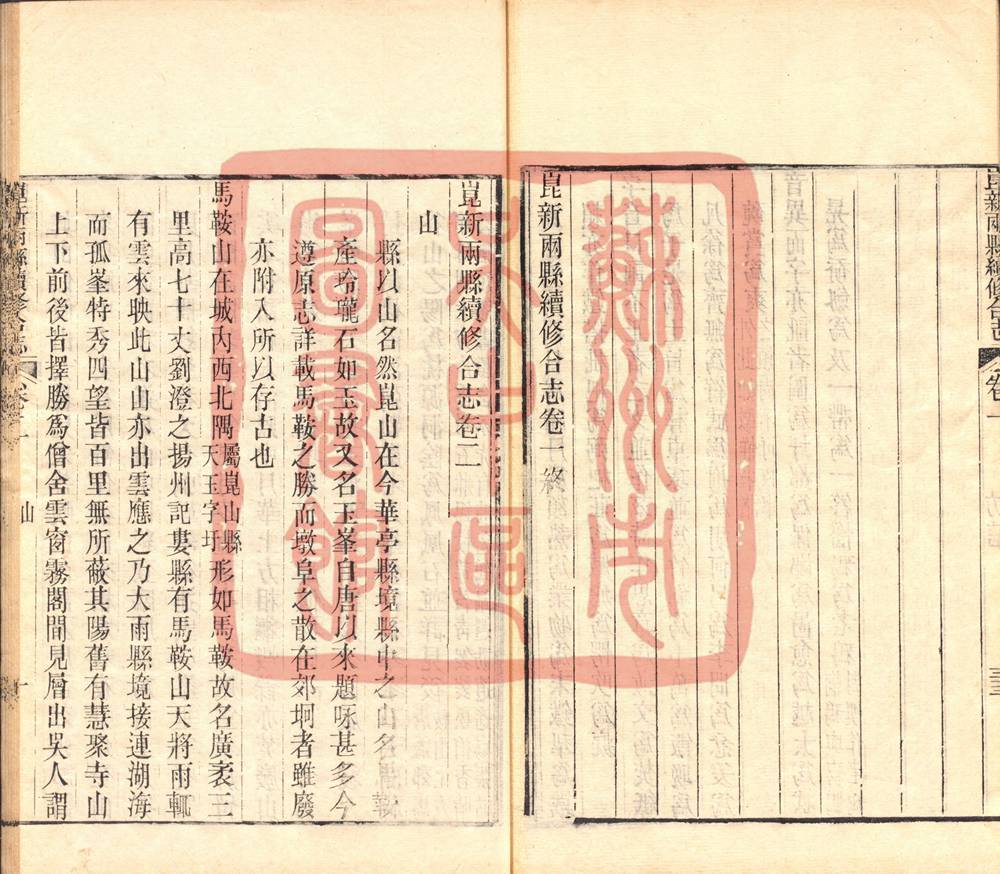 崑新兩縣續修合志卷一終
崑新兩縣續修合志卷二
山
縣以山名然崑山在今華亭縣境縣中之山名馬鞍
產玲瓏石如玉故又名玉峯自唐以來題咏甚多今
遵原志詳載馬鞍之勝而墩阜之散在郊坰者雖廢
亦附入所以存古也
馬鞍山在城內西北隅屬崑山縣天玉字圩形如馬鞍故名廣袤三
里高七十丈劉澄之揚州記婁縣有馬鞍山天將雨輒
有雲來映此山山亦出雲應之乃大雨縣境接連湖海
而孤峯特秀四望皆百里無所蔽其陽舊有慧聚寺山
上下前後皆擇勝為僧舍雲窗霧閣間見層出吳人謂
崑新兩縣續修合志
山
蘇州市
古吳區
圖書館